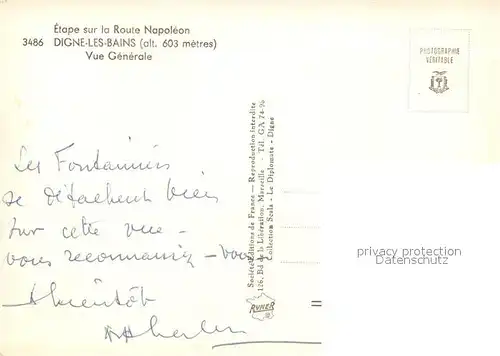 Étape sur la Route Napoléon
3486 DIGNE-LES-BAINS (alt. 603 mètres)
Vue Générale
PHOTOGRAPHIE
VÉRITABLE
Les Fontainiers
se détachent bien
sur cette vue -
vous reconnaissez - vous
A bientôt
Société Editions de France — Reproduction Interdite
126, Bd de la Libération, Marseille - Tél. GA 74-96
Collection Scala - Le Diplomate - Digne
RYNER
privacy protection
Datenschutz